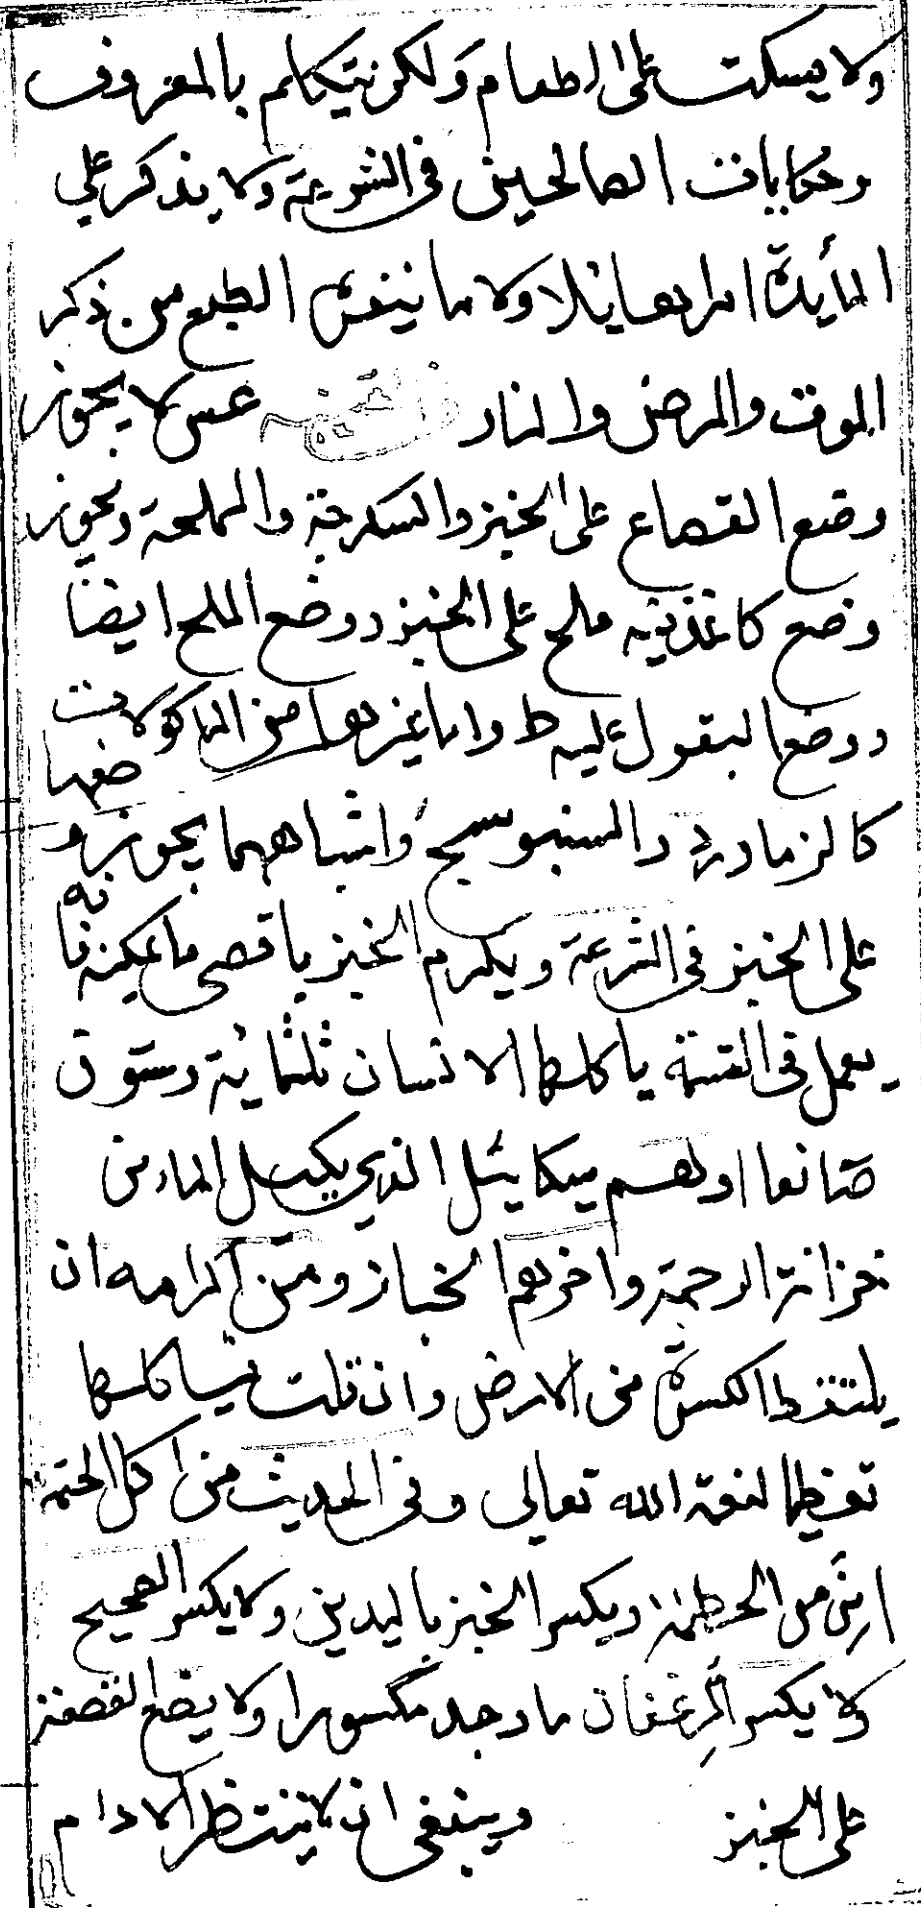 ولا يسكت على الطعام ولكن يتكلم بالمعروف
وحكايات الصالحين في الشرعة ولا يذكر على
المأيدة امرا هايلا ولا ما ينفر الطبع من ذكر
الموت والمرض والنار عس لا يجوز
وضع القصاع على الخبز والسكرجة والمملحة ويجوز
وضع كاغذية ملح على الخبز ووضع الملح ايضا
ووضع البقول عليه ط واما غيرها من الماكولات
كالزماورد والسنبوسج واشباههما يجوز وضعها
على الخبز في الشرعة ويكرم الخبز باقصى ما يمكنه فانه
يعمل في القمة ياكلها الانسان ثلثماية وستون
صانعا اولهم ميكائيل الذي يكيل الماء من
خزانة الرحمة واخرهم الخباز ومن اكرامه ان
يلتقط الكسرة من الارض وان قلت فياكلها
تعظيما لنعمة الله تعالى وفي الحديث من اكل
من ويكسر الخبز باليدين ولا يكسر الصحيح
ولا يكسر الرغفان ما وجد مكسورا ولا يضع القصعة
على الخبز وينبغي ان لا ينتظر الادام